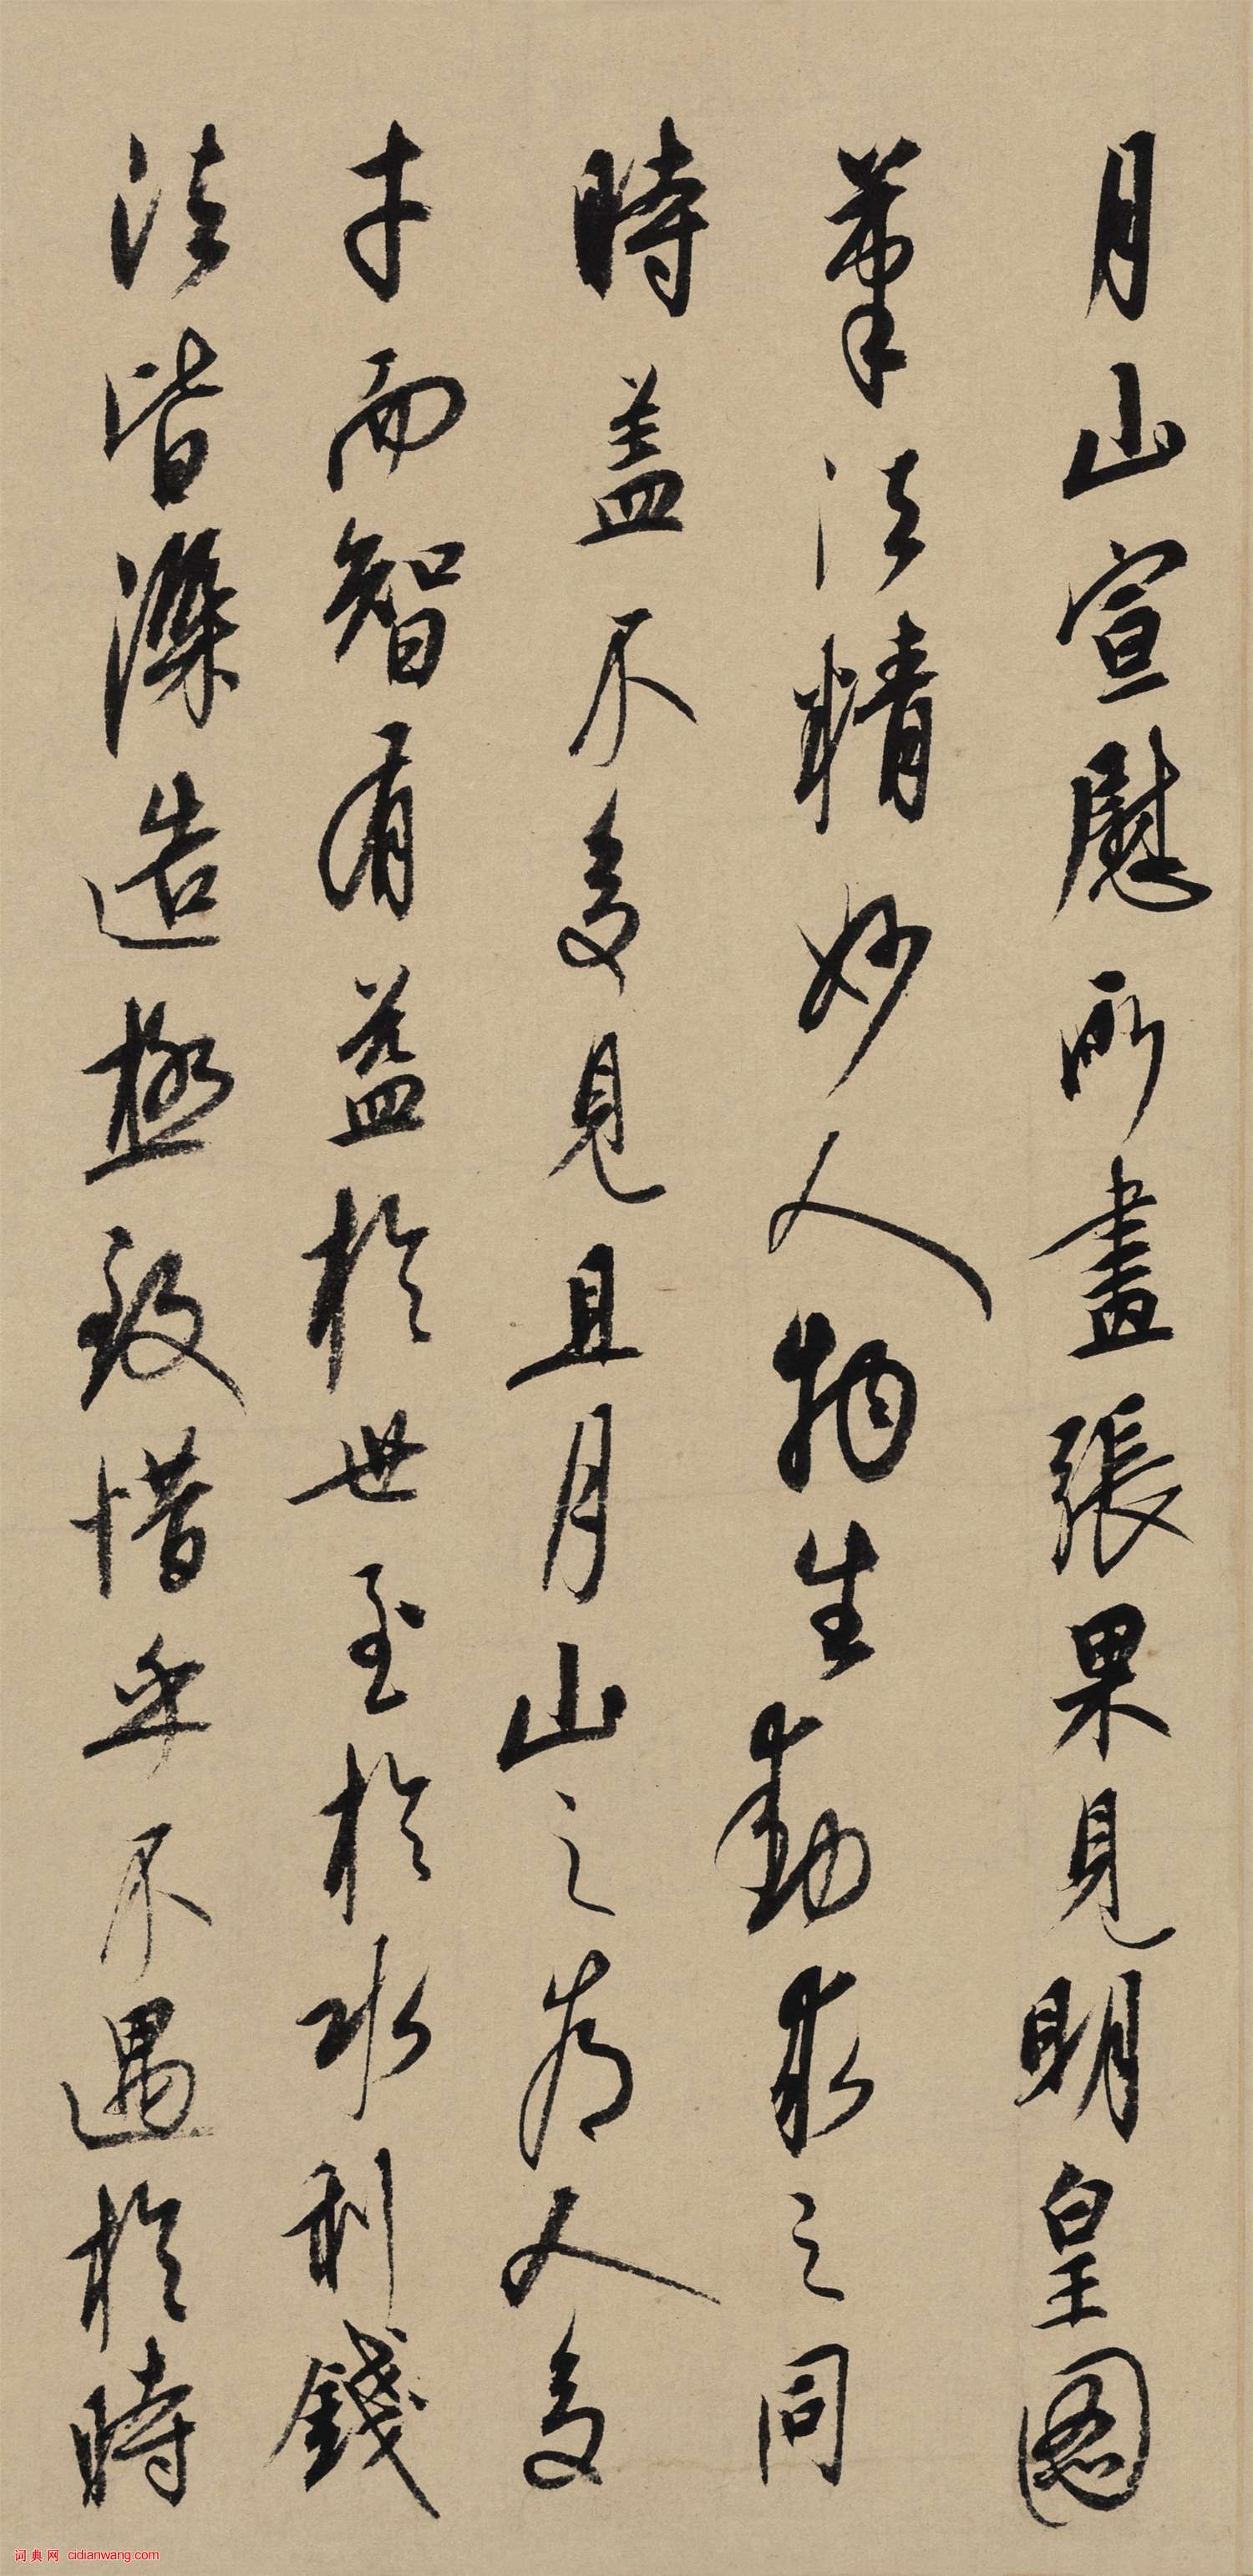 月山宣慰所畫張果見明皇圖
筆法精妙人物生動求之同
時蓋不多見且月山之為人多
才而智有益於世至於水利錢
法皆深造極致惜乎不遇於時
词典网 cidianwang.com